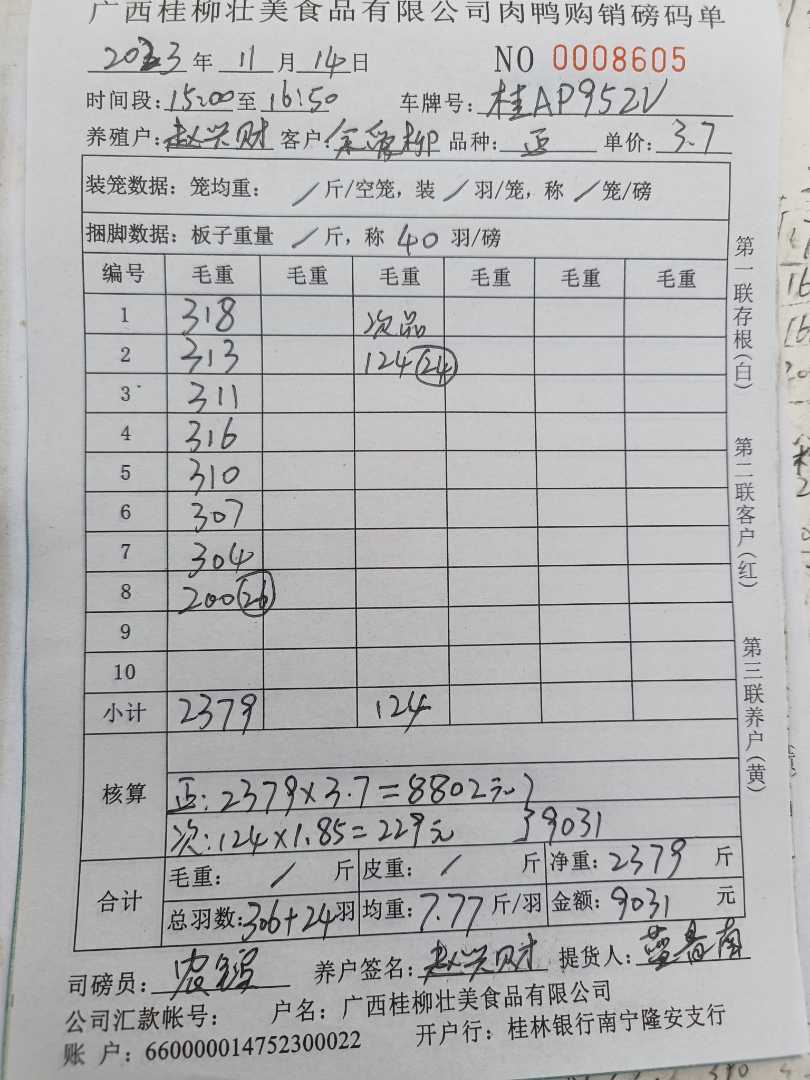 广西桂柳壮美食品有限公司肉鸭购销磅码单
2023年 11月 14日 NO 0008605
时间段:15:00至16:50 车牌号:桂AP952V
养殖户:赵兴财 客户: 品种:正 单价:3.7
装笼数据:笼均重: /斤/空笼,装 /羽/笼,称 /笼/磅
捆脚数据:板子重量 /斤,称 40 羽/磅
编号 毛重 毛重 毛重 毛重 毛重 毛重
1 318 次品
2 313 124(24)
3 311
4 316
5 310
6 307
7 304
8 200(26)
9
10
小计 2379 124
核算
正:2379×3.7=8802元
次:124×1.85=229元 }9031
合计
毛重: / 斤 皮重: / 斤 净重:2379 斤
总羽数:306+24羽 均重:7.77斤/羽 金额:9031 元
司磅员: 养户签名:赵兴财 提货人:
公司汇款帐号: 户名:广西桂柳壮美食品有限公司
账 户:660000014752300022 开户行:桂林银行南宁隆安支行
第一联存根(白)
第二联客户(红)
第三联养户(黄)